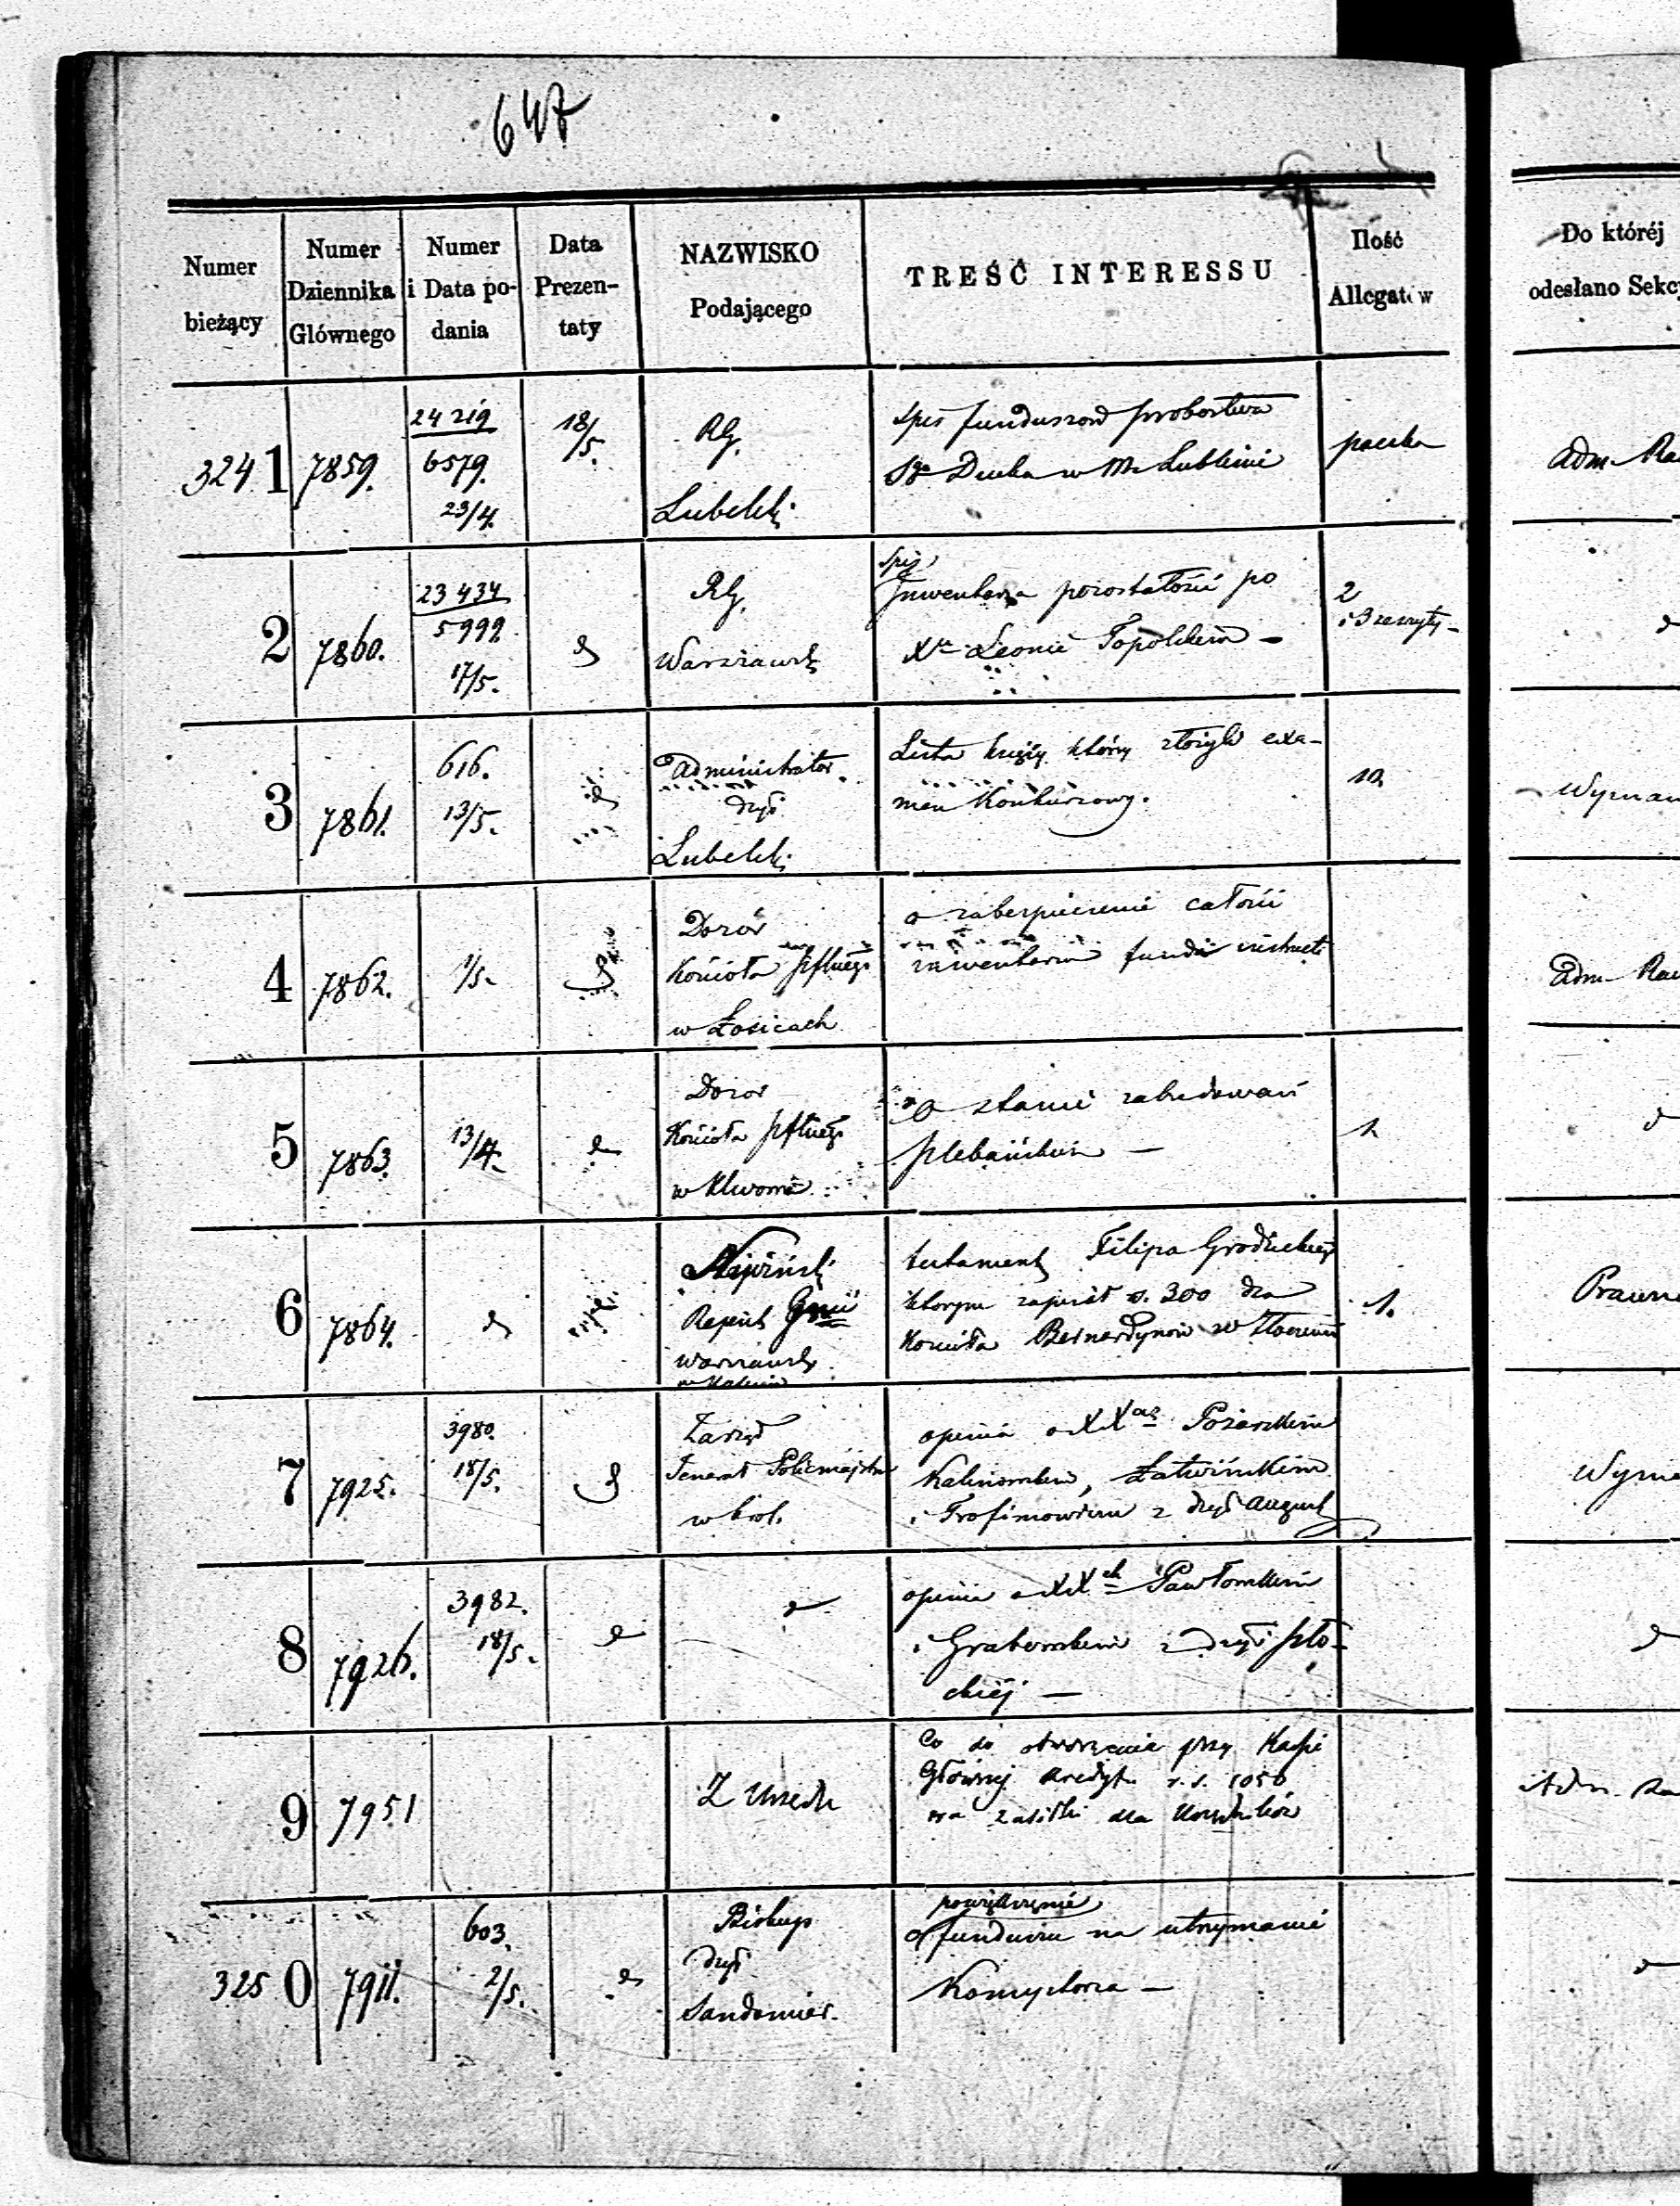 647
Numer bieżący
Numer Dziennika Głównego
Numer i Data podania
Data Prezentaty
NAZWISKO Podającego
TREŚĆ INTERESSU
Ilość Allegatów
Do któréj odesłano Sekc
3241 7859. 24 219 6579. 23/4. 18/5. RG. Lubelski
spis funduszow probostwa
Sgo Ducha w M. Lublinie
paczka
Adm. Ra
2 7860. 23 434 5999. 17/5. d RG. Warszawski
spis
Inwentarza pozostałości po
Xdzu Leonie Topolskim —
2
i 3 zeszyty —
d
3 7861. 616. 13/5. d Administrator
dyec
Lubelski
Lista księży którzy złożyli exa-
men konkursowy.
10
Wyznan
4 7862. 1/5. d Dozór
Kościoła pflnego
w Łosicach
o zabezpieczenie całości
inwentarza fundi instructi
Adm. Ra
5 7863. 13/4. d Dozór
Kościoła pflnego
w Klwowie
O stanie zabudowań
plebańskich —
1.
d
6 7864. d d
Rejent Gnii
warszawskiej
testament Filipa Grodzickiego
którym zapisał rs. 300 dla
Kościoła Bernardynów w
1.
Prawn
7 7925. 3980. 18/5. d Zarząd
Jenerał Policmajstra
w król.
opinia o XXach Pożarskim
Kalinowskim, Łatwińskim
i Trofimowiczu z dyec August
Wyzna
8 7926. 3982. 18/5. d d
opinia o XXch Pawłowskim
i Grabowskim z dyec płoc-
kiéj —
d
9 7951 Z Urzędu
Co do otworzenia przy Kassie
Głównej kredytu r.s. 1050
na zasiłki dla
Adm. Ra
3250 7911. 603. 2/5. d Biskup
dyec
Sandomier.
powiększenie
o funduszu na utrzymanie
Konsystorza —
d